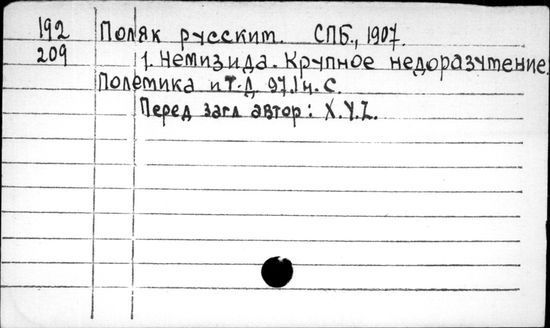 192 Поляк русским. СПБ., 1907.
209 1. Немизида. Крупное недоразумение.
Полемика и т.д. 97, 1 н. с.
Перед загл автор: X.Y.Z.